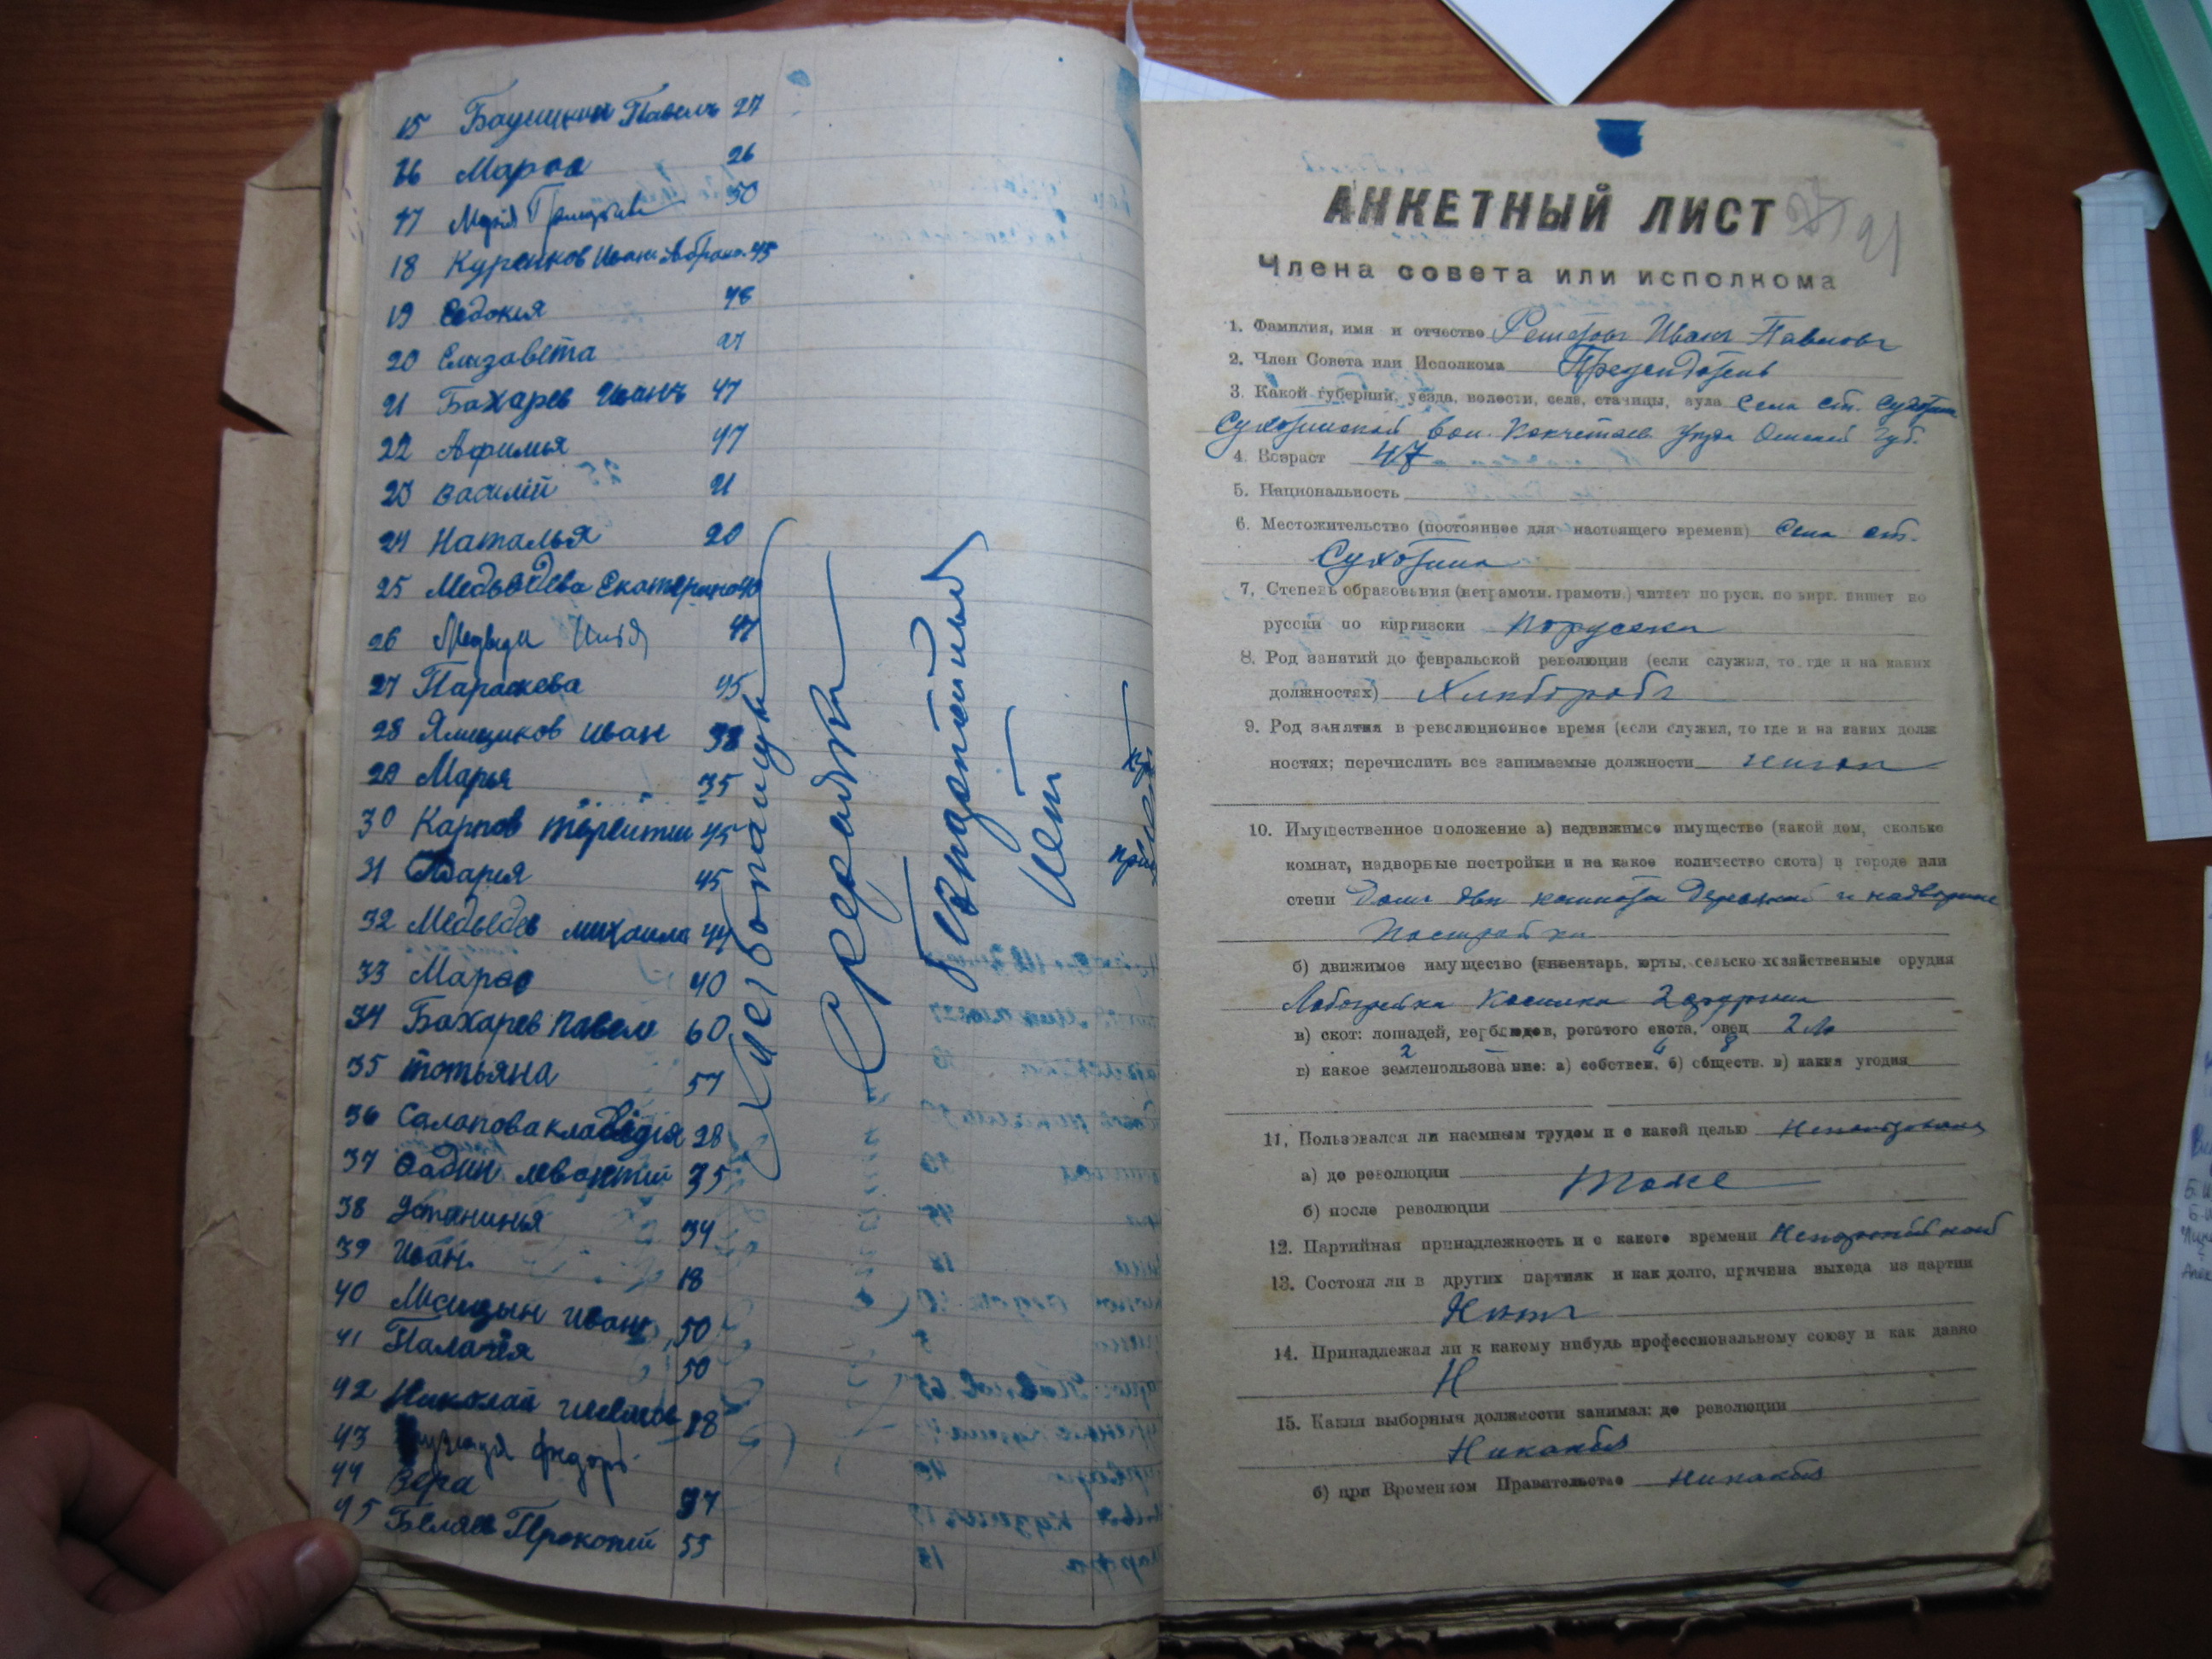 15 Баушкин Павелъ 27
16 Мароа 26
17 Марія 30
18 Куренков Иван Абрам. 45
19 Евдокия 48
20 Елизовета 27
21 Бахарев Иванъ 47
22 Афимья 47
23 Василій 21
24 Наталья 20
25 Медведева Екатерина
26 47
27 Параскева 45
28 Ямщиков Иван 38
29 Марья 35
30 Карпов терентии 45
31 Дария 45
32 Медведев михаила 44
33 Мароо 40
34 Бахарев Павел 60
35 тотьяна 57
36 Салапова клавдія 28
37 левонтий 35
38 Устининья 34
39 Иван 18
40 Иван 50
41 Палагея 50
42 Николай 28
43 федоръ
44 Вера 37
45 Беляев Прокопий 55
Хлебопашцы
Середняки
безпартейныя
Нет
АНКЕТНЫЙ ЛИСТ
21
Члена совета или исполкома
1. Фамилия, имя и отчество Решетовъ Иванъ Павловъ
2. Член Совета или Исполкома Предсидатель
3. Какой губернии, уезда, волости, села, станицы, аула Села ст. Сухотина
Сухотинской вол. Кокчетав. уезда Омской губ.
4. Возраст 47
5. Национальность
6. Местожительство (постоянное для настоящего времени) Села ст.
Сухотина
7. Степень образования (неграмотн. грамотн.) читает по руск. по кирг. пишет по
русски по киргизски Поруски
8. Род занятий до февральской революции (если служил, то где и на каких
должностях) Хлиборобъ
9. Род занятия в революционное время (если служил, то где и на каких долж
ностях; перечислить все занимаемые должности
10. Имущественное положение а) недвижимое имущество (какой дом, сколько
комнат, надворные постройки и на какое количество скота) в городе или
степи Домъ две комноты деревяной и надворние
Пастройки
б) движимое имущество (инвентарь, юрты, сельско-хозяйственные орудия
Лобогрейка Косилка 2
в) скот: лошадей, верблюдов, рогатого скота, овец 2 ло
г) какое землепользование: а) собствен. б) обществ. в) какия угодия
11. Пользовался ли наемным трудом и с какой целью Непользовался
а) до революции
б) после революции Тоже
12. Партийная принадлежность и с какого времени Непартейной
13. Состоял ли в других партиях и как долго, причина выхода из партии
Нетъ
14. Принадлежал ли к какому нибудь профессиональному союзу и как давно
Н
15. Какия выборныя должности занимал: до революции
Никакия
б) при Временном Правительстве Никакия